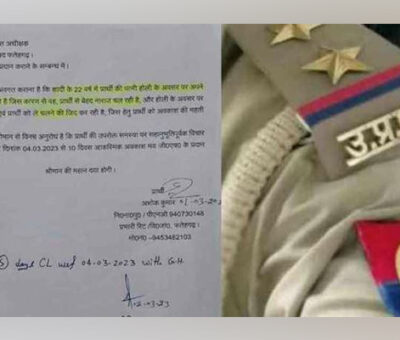 अधीक्षक
फतेहगढ़।
प्रदान कराने के सम्बन्ध में।
अवगत कराना है कि शादी के 22 वर्ष में प्रार्थी की पत्नी होली के अवसर पर अपने
है जिस कारण से वह, प्रार्थी से बेहद नाराज चल रही है, और होली के अवसर पर
एवं प्रार्थी को ले चलने की जिद कर रही है, जिस हेतु प्रार्थी को अवकाश की महती
श्रीमान से विनम्र अनुरोध है कि प्रार्थी की उपरोक्त समस्या पर सहानुभूतिपूर्वक विचार
दिनांक 04.03.2023 से 10 दिवस आकस्मिक अवकाश मय जी०एच० के प्रदान
श्रीमान की महान दया होगी।
प्रार्थी
01-03-2023
अशोक कुमार
नि०ना०पु० / पीएनओ 940730148
प्रभारी रिट /जि०प०, फतेहगढ़।
मो०न० -9453482103
5 days CL wef 04-03-2023 with G.H.
02-03-23
उ.प्र.